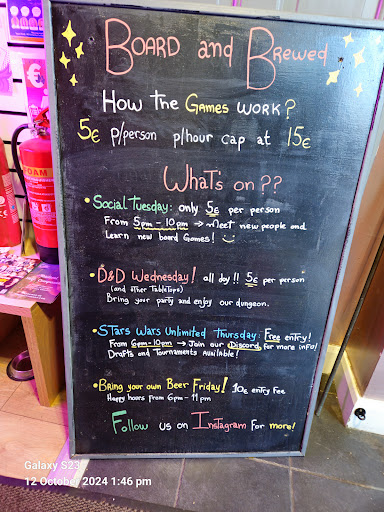 BOARD and BREWED
How the Games work?
5€ p/person p/hour cap at 15€
What's on??
Social Tuesday: only 5€ per person
From 5pm - 10pm → Meet new people and
Learn new board Games!
D&D Wednesday! all day!! 5€ per person
(and other TableTops)
Bring your party and enjoy our dungeon.
Stars Wars Unlimited Thursday: Free entry!
From 6pm-10pm → Join our Discord for more info!
Drafts and Tournaments Available!
Bring your own Beer Friday! 10€ entry Fee
Happy hours from 6pm - 11pm
Follow us on Instagram for more!
Galaxy S23
12 October 2024 1:46 pm